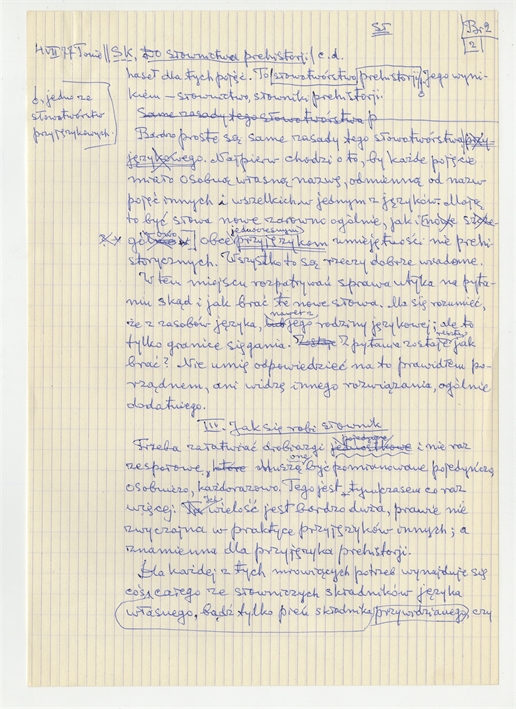 SI
Br. 2
2
4 VII 77 Tonie || SK, Do słownictwa prehistorji / c.d.
haseł dla tych pojęć. To słowotwórstwo prehistorji, jego wyni-
kiem – słownictwo, słowniki prehistorji.
6, jedno ze
słowotwórstw
przyjęzykowych.
Same zasady tego słowotwórstwa p
Bardzo proste są same zasady tego słowotwórstwa przy-
językowego. Najpierw chodzi o to, by każde pojęcie
miało osobną własną nazwę, odmienną od nazw
pojęć innych i wszelkich w jednym z języków. Mają
to być słowa nowe zarówno ogólnie, jak i
obce przyjęzykom umiejętności nie prehi-
storycznych. Wszystko to są rzeczy dobrze wiadome.
W tem miejscu rozpatrywań sprawa utyka na pyta-
niu skąd i jak brać te nowe słowa. Ma się rozumieć,
że z zasobów języka, nawet z jego rodziny językowej; ale to
tylko granice sięgania. Z pytania zostaje reszta jak
brać? Nie umię odpowiedzieć na to prawidłem po-
rządnem, ani widzę innego rozwiązania, ogólnie
dodatniego.
III. Jak się robi słownik
Trzeba załatwiać drobiazgi i nie raz
zesporowe, które one muszą być pomianowane pojedyńczo,
osobniczo, każdorazowo. Tego jest, tymczasem coraz
więcej. Ta wielość jest bardzo duża, prawie nie
zwyczajna w praktyce przyjęzyków innych; a
znamienna dla przyjęzyka prehistorji.
Dla każdej z tych mrowiących potrzeb wynajduje się
coś całego ze słowniczych składników języka
własnego, bądź tylko pień składnika przywidzianego, czy